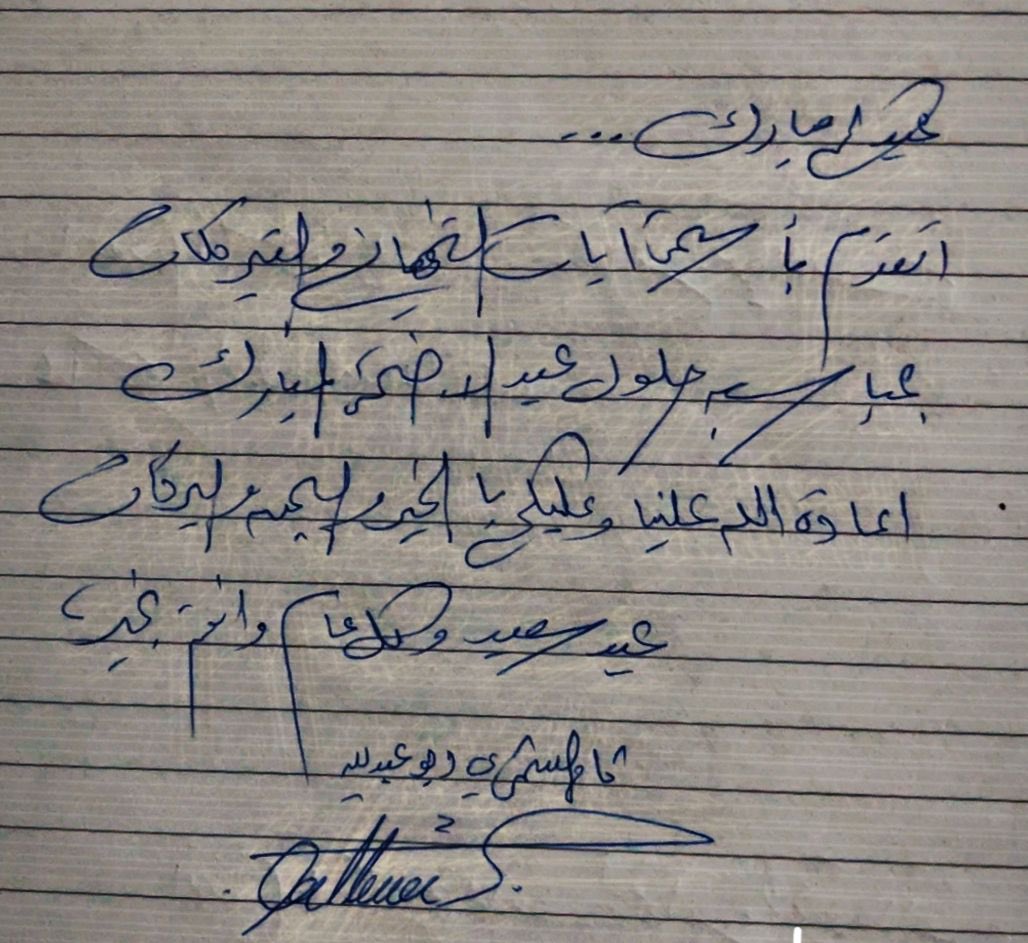 عيدكم مبارك...
اتقدم بأسمى آيات التهاني والتبريكات
بمناسبة حلول عيد الاضحى المبارك
اعادة الله علينا وعليكم با الخير واليمن والبركات
عيد سعيد وكل عام وانتم بخير
ابو عبدالله